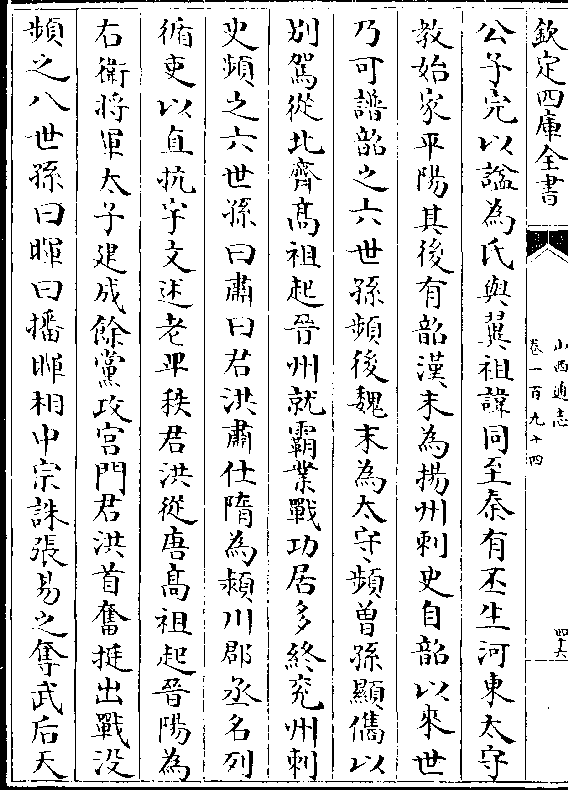 欽定四庫全書
山西通志
卷一百九十四
公子完以謚為氏與翼祖諱同至秦有丕生河東太守
教始家平陽其後有韶漢末為揚州刺史自韶以來世
乃可譜韶之六世孫頻後魏末為太守頻曾孫顯儁以
别駕從北齊高祖起晉州就霸業戰功居多終兖州刺
史頻之六世孫曰肅曰君洪肅仕隋為潁川郡丞名列
循吏以直抗宇文述老平秩君洪從唐高祖起晉陽為
右衛將軍太子建成餘黨攻宫門君洪首奮挺出戰没
頻之八世孫曰暉曰播暉相中宗誅張易之奪武后天